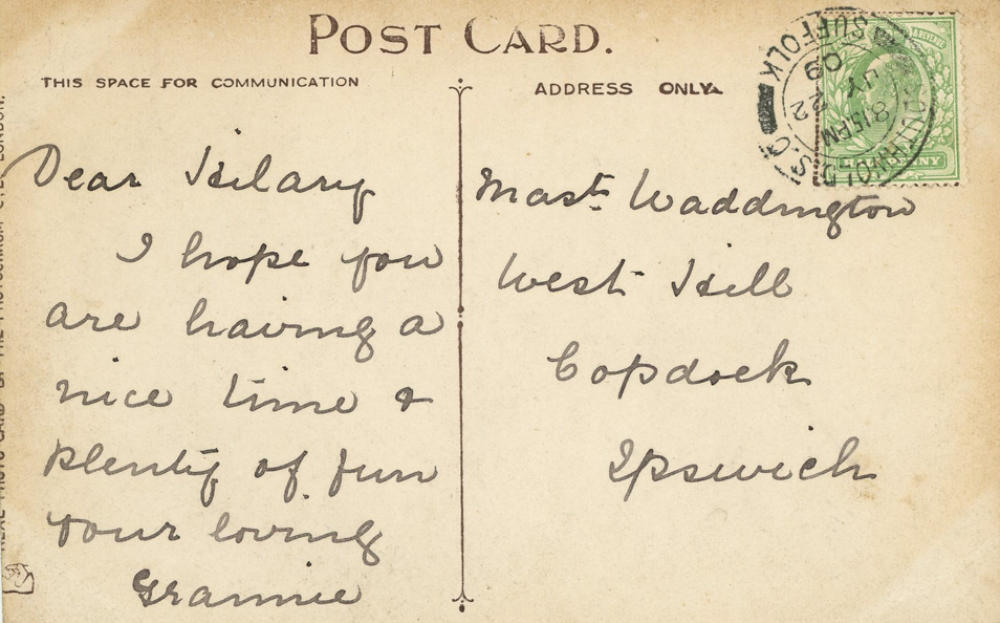 POST CARD.
THIS SPACE FOR COMMUNICATION
ADDRESS ONLY.
Dear Hilary
I hope you
are having a
nice time &
plenty of fun
your loving
Grannie
Mast. Waddington
West Hill
Copdock
Ipswich
SOUTHWOLD S.O
SUFFOLK
8 15 PM
JY 22
09
REAL PHOTO CARD BY THE PHOTOCHROM CO. LTD. LONDON.